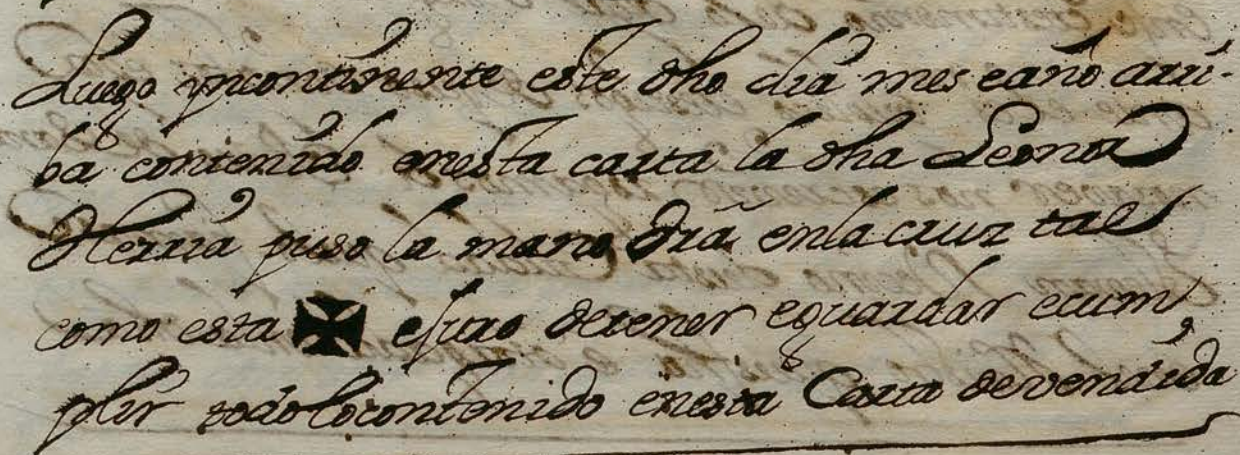 Luego yncontinente este dho dia mes e año arri-
ba contenido en esta carta la dha Leonor
Herria puso la mano drã en la cruz tal
como esta ✠ e juro de tener e guardar e cum
plir todo lo contenido en esta Carta de vendida